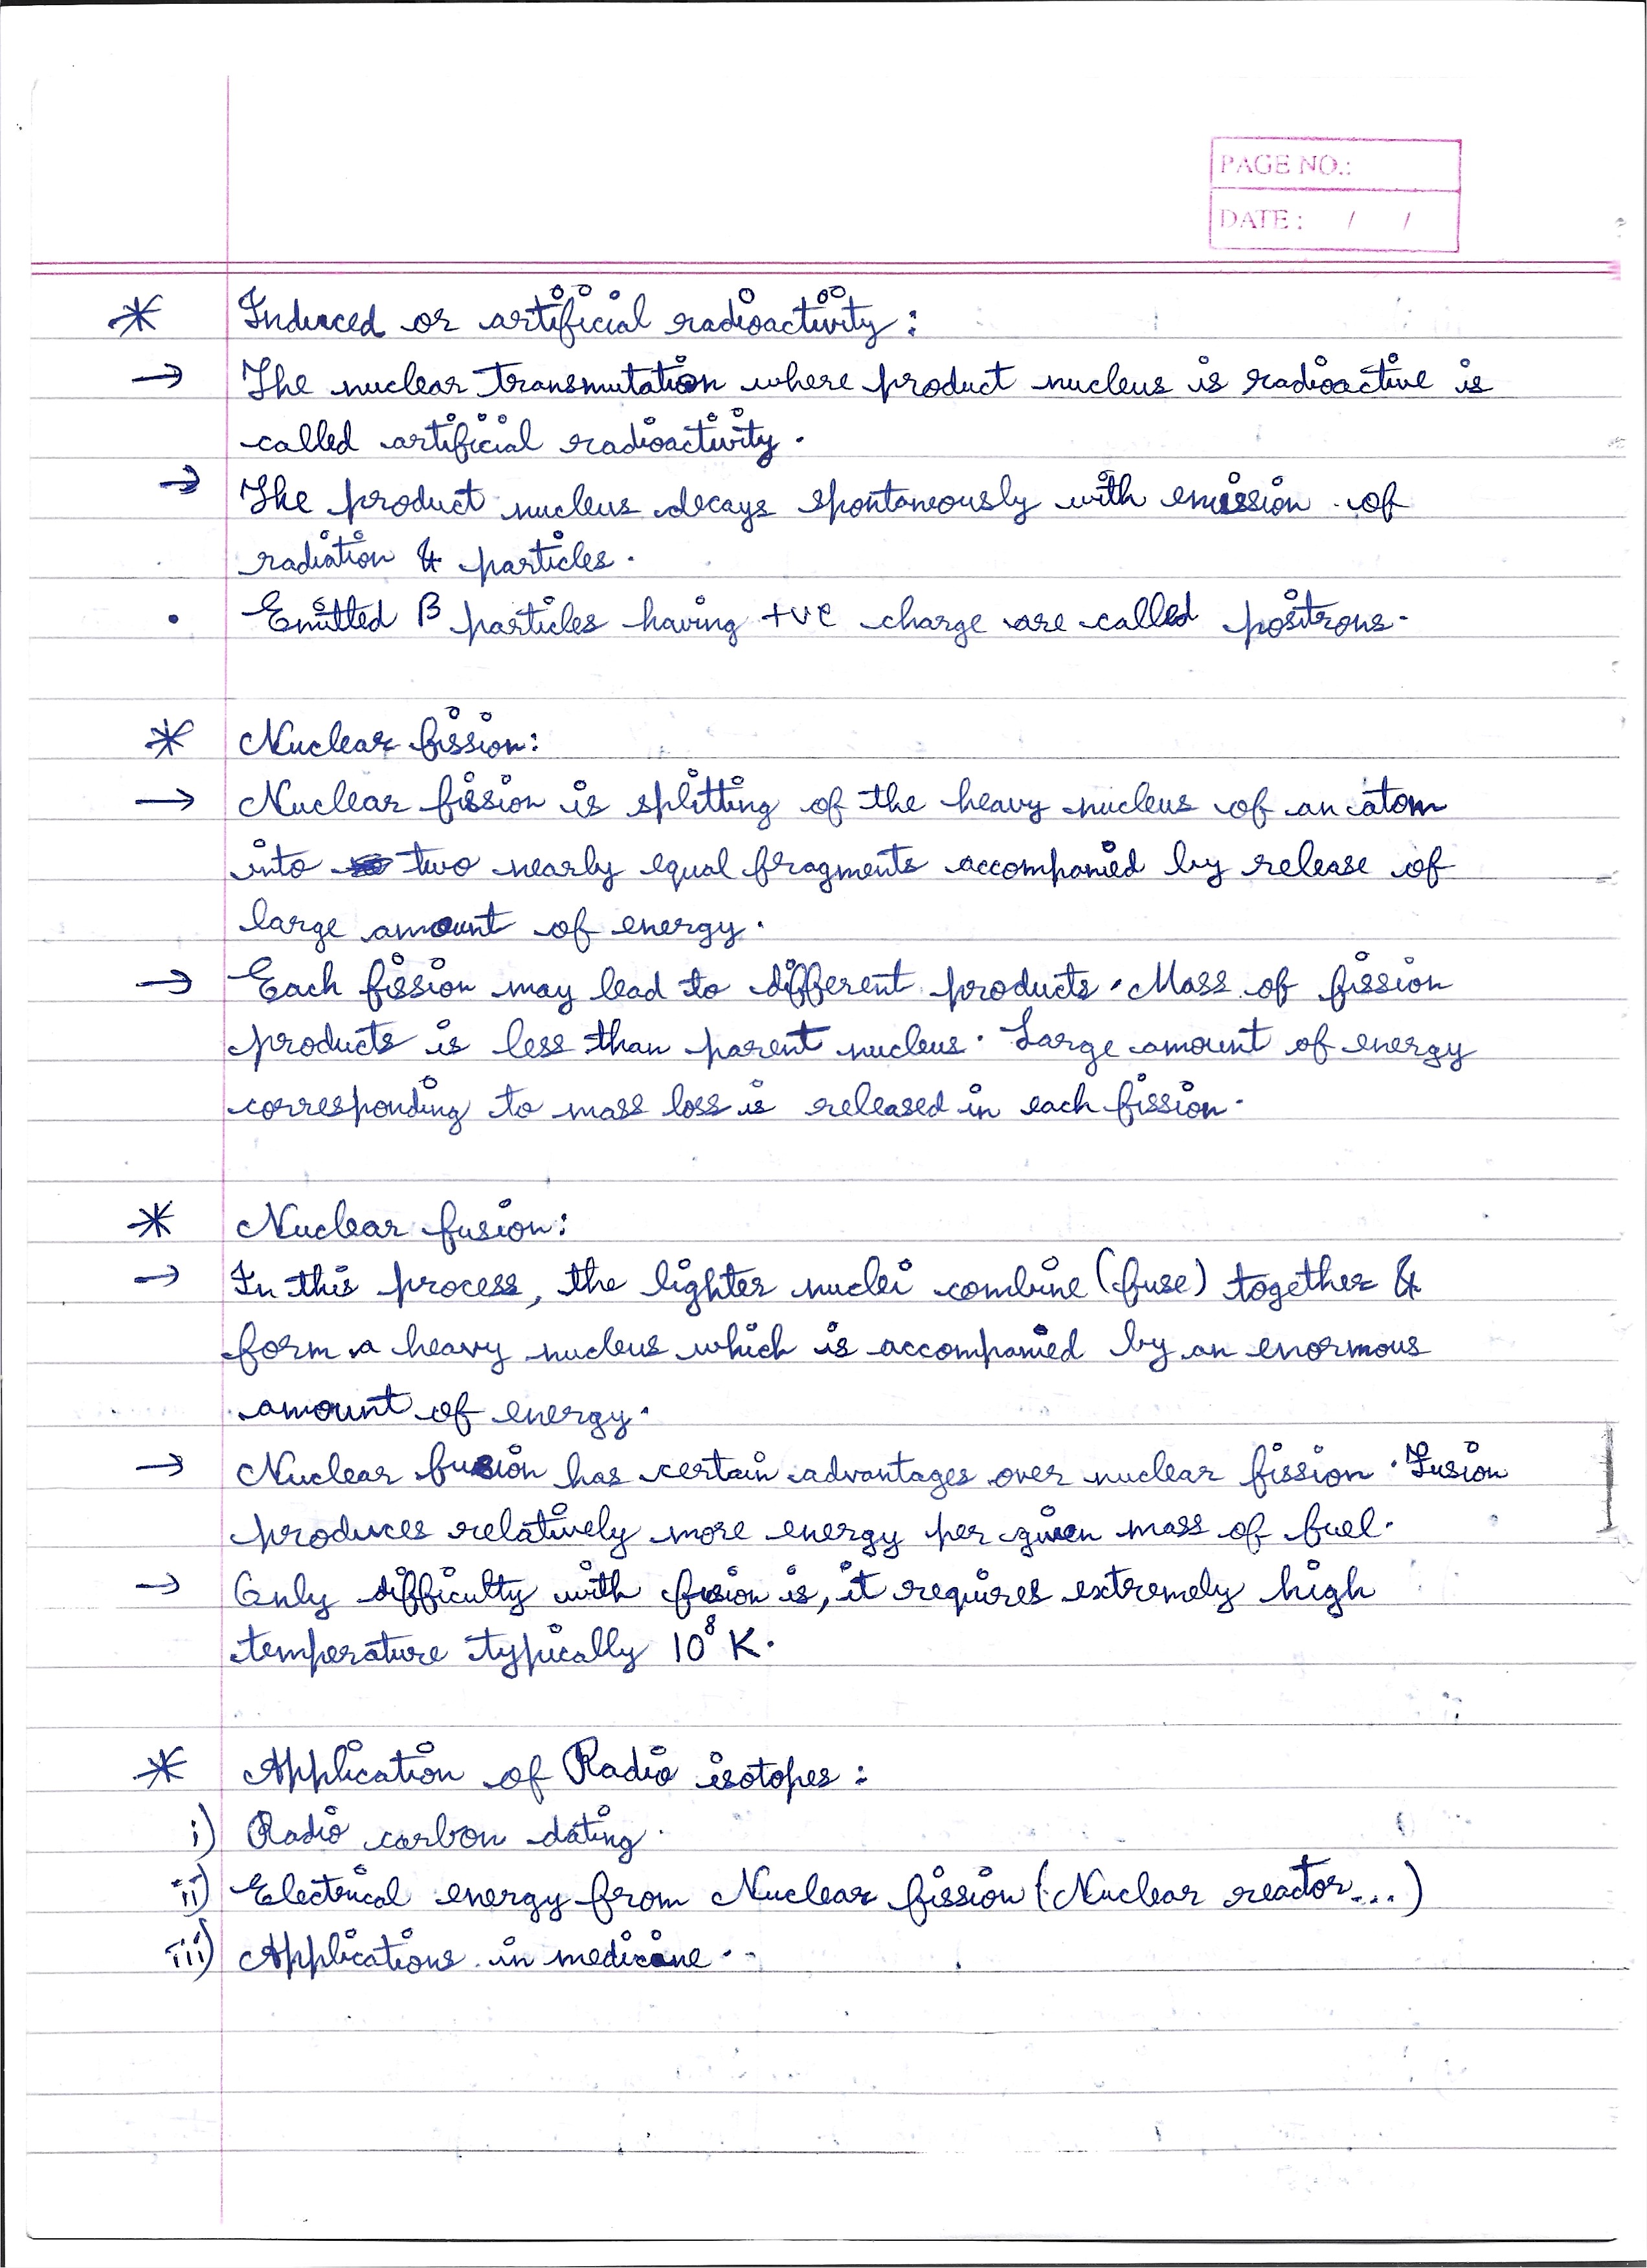 PAGE NO.:
DATE : / /
* Induced or artificial radioactivity :
→ The nuclear transmutation where product nucleus is radioactive is
called artificial radioactivity.
→ The product nucleus decays spontaneously with emission of
radiation & particles.
• Emitted β particles having +ve charge are called positrons.
* Nuclear fission:
→ Nuclear fission is splitting of the heavy nucleus of an atom
into two nearly equal fragments accompanied by release of
large amount of energy.
→ Each fission may lead to different products. Mass of fission
products is less than parent nucleus. Large amount of energy
corresponding to mass loss is released in each fission.
* Nuclear fusion:
→ In this process, the lighter nuclei combine (fuse) together &
form a heavy nucleus which is accompanied by an enormous
amount of energy.
→ Nuclear fusion has certain advantages over nuclear fission. Fusion
produces relatively more energy per given mass of fuel.
→ Only difficulty with fusion is, it requires extremely high
temperature typically 10⁸ K.
* Application of Radio isotopes :
i) Radio carbon dating.
ii) Electrical energy from Nuclear fission (Nuclear reactor...)
iii) Applications in medicine..